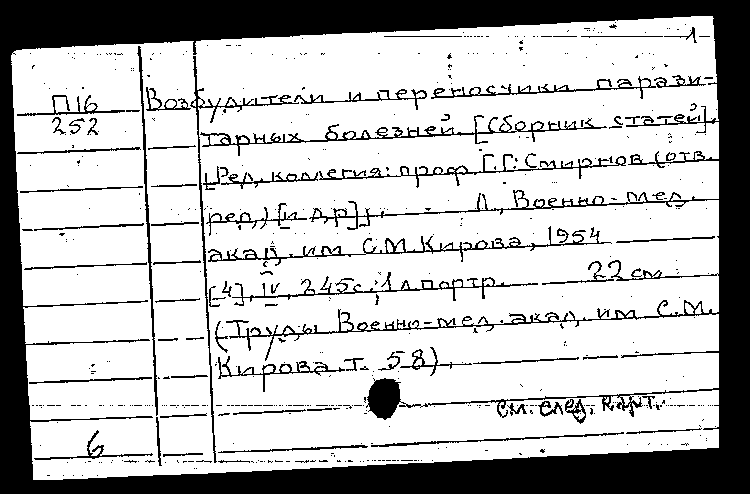 1
П16
252
Возбудители и переносчики парази-
тарных болезней. [Сборник статей].
[Ред. коллегия: проф. Г.Г. Смирнов (отв.
ред.) [и др.]. - Л., Военно-мед.
акад. им. С.М. Кирова, 1954
[4], IV, 245 с.; 1 л. портр. 22 см
(Труды Военно-мед. акад. им. С.М.
Кирова. т. 58).
см. след. карт.
6